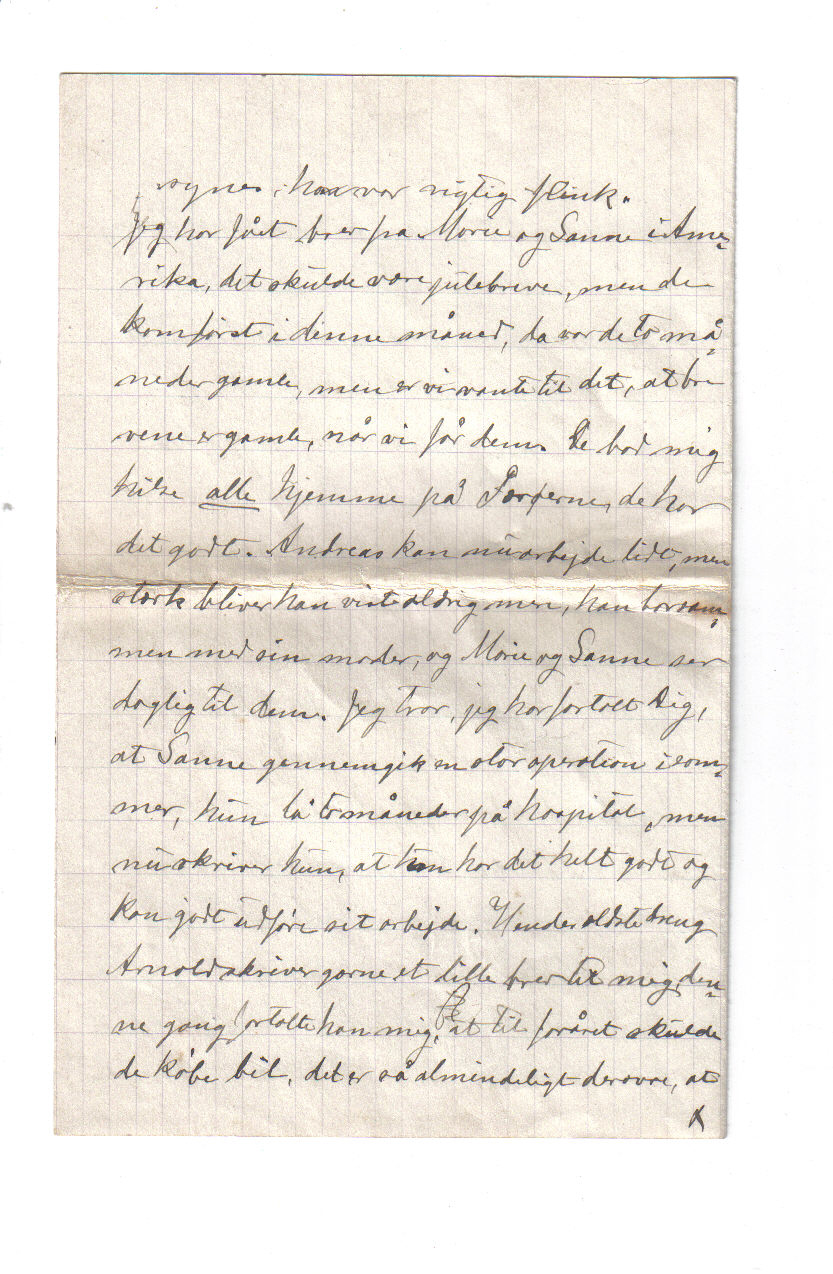 synes, han var rigtig flink.
Jeg har fået brev fra Marie og Sanne i Ame-
rika, det skulde være julebreve, men de
kom først i denne måned, da var de to må-
neder gamle, men er vi vante til det, at bre
vene er gamle, når vi får dem. De bad mig
hilse alle hjemme på Færøerne, de har
det godt. Andreas kan nu arbejde lidt, men
stærk bliver han vist aldrig mere, han bor sam-
men med sin moder, og Marie og Sanne ser
daglig til dem. Jeg tror, jeg har fortalt Dig,
at Sanne gennemgik en stor operation i som-
mer, hun lå to måneder på hospital, men
nu skriver hun, at hun har det helt godt og
kan godt udføre sit arbejde. Hendes ældste dreng
Arnold skriver gærne et lille brev til mig, den-
ne gang fortalte han mig, at til foråret skulde
de købe bil, det er så almindeligt derovre, at